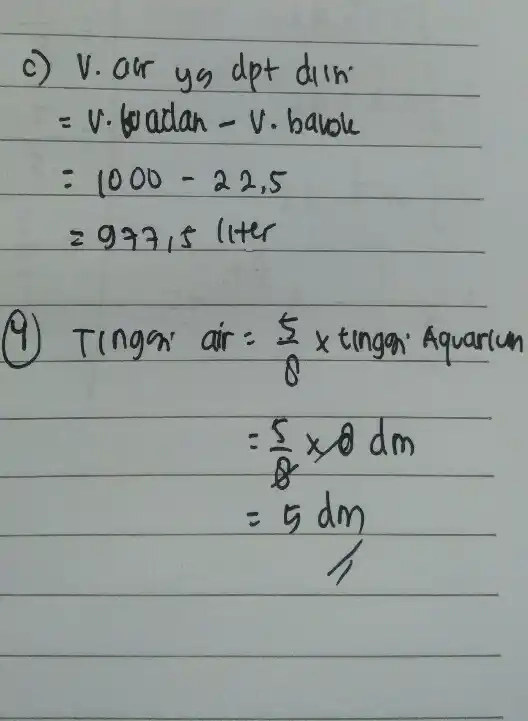 c) V. air yg dpt diisi
= V. wadah - V. balok
= 1000 - 22,5
= 977,5 liter
④ Tinggi air = 5/8 x tinggi Aquarium
= 5/8 x 8 dm
= 5 dm